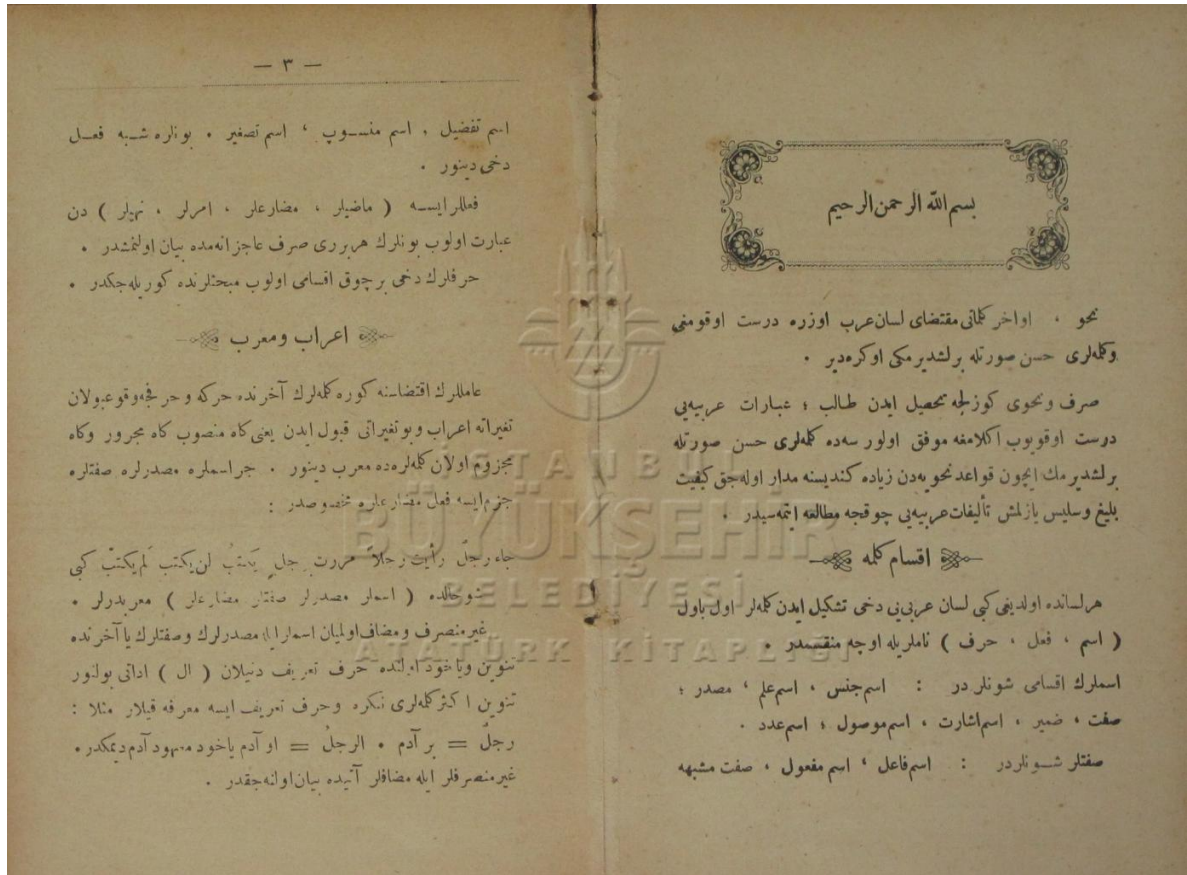 بسم الله الرحمن الرحيم
نحو ، اواخر كلماتی مقتضای لسان عرب اوزره درست اوقومنی
وكلمه‌لری حسن صورتله برلشدیرمكی اوكره‌دیر .
صرف ونحوی كوزلجه تحصیل ایدن طالب ؛ عبارات عربیه‌یی
درست اوقویوب اكلامغه موفق اولور سه‌ده كلمه‌لری حسن صورتله
برلشدیرمك ایچون قواعد نحویه‌دن زیاده كندیسنه مدار اوله‌جق كیفیت
بلیغ وسلیس یازلمش تألیفات عربیه‌یی چوقجه مطالعه ایتمه‌سیدر .
اقسام كلمه
هر لسانده اولدیغی كبی لسان عربی‌یی دخی تشكیل ایدن كلمه‌لر اول باول
( اسم ، فعل ، حرف ) ناملریله اوچه منقسمدر .
اسملرك اقسامی شونلر در : اسم جنس ، اسم علم ، مصدر ؛
صفت ، ضمیر ، اسم اشارت ، اسم موصول ؛ اسم عدد .
صفتلر شـونلردر : اسم فاعل ، اسم مفعول ، صفت مشبهه
— ٣ —
اسم تفضیل ، اسم منسـوب ، اسم تصغیر . بونلره شـبه فعـل
دخی دینور .
فعللر ایسـه ( ماضیلر ، مضارعلر ، امرلر ، نهیلر ) دن
عبارت اولوب بونلرك هر بری صرف عاجزانه‌مده بیان اولنمشدر .
حرفلرك دخی بر چوق اقسامی اولوب مبحثلرنده كوریله‌جكدر .
اعراب ومعرب
عامللرك اقتضاسنه كوره كلمه‌لرك آخرنده حركه و حرفجه وقوعبولان
تغیراته اعراب وبو تغیراتی قبول ایدن یعنی كاه منصوب كاه مجرور وكاه
مجزوم اولان كلمه‌لره‌ده معرب دینور . جر اسملره مصدرلره صفتلره
جزم ایسه فعل مضارعلره مخصوصدر :
جاء رجلٌ رأیت رجلاً مررت برجلٍ یكتبُ لن یكتبَ لم یكتبْ كبی
شو حالده ( اسملر مصدرلر صفتلر مضارعلر ) معربدرلر .
غیر منصرف ومضاف اولمیان اسملر ایله مصدرلرك وصفتلرك یا آخرنده
تنوین ویاخود اولنده حرف تعریف دنیلان ( ال ) اداتی بولنور
تنوین اكثر كلمه‌لری نكره وحرف تعریف ایسه معرفه قیلار مثلا :
رجلٌ = بر آدم . الرجلُ = او آدم یاخود معهود آدم دیمكدر .
غیر منصرفلر ایله مضافلر آتیده بیان اولنه‌جقدر .
İSTANBUL
BÜYÜKŞEHİR
BELEDİYESİ
ATATÜRK KİTAPLIĞI